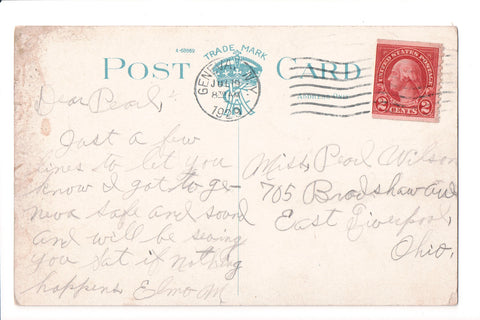 TRADE MARK
POST CARD
GENEVA, N.Y.
JUL
192
UNITED STATES POSTAGE
2 CENTS 2
Dear Pearl,
Just a few
lines to let you
know I got to ge-
neva safe and sound
and will be seeing
you Sat if nothing
happens Elmo M
Miss Pearl Wilson
705 Bradshaw Ave
East Liverpool,
Ohio.